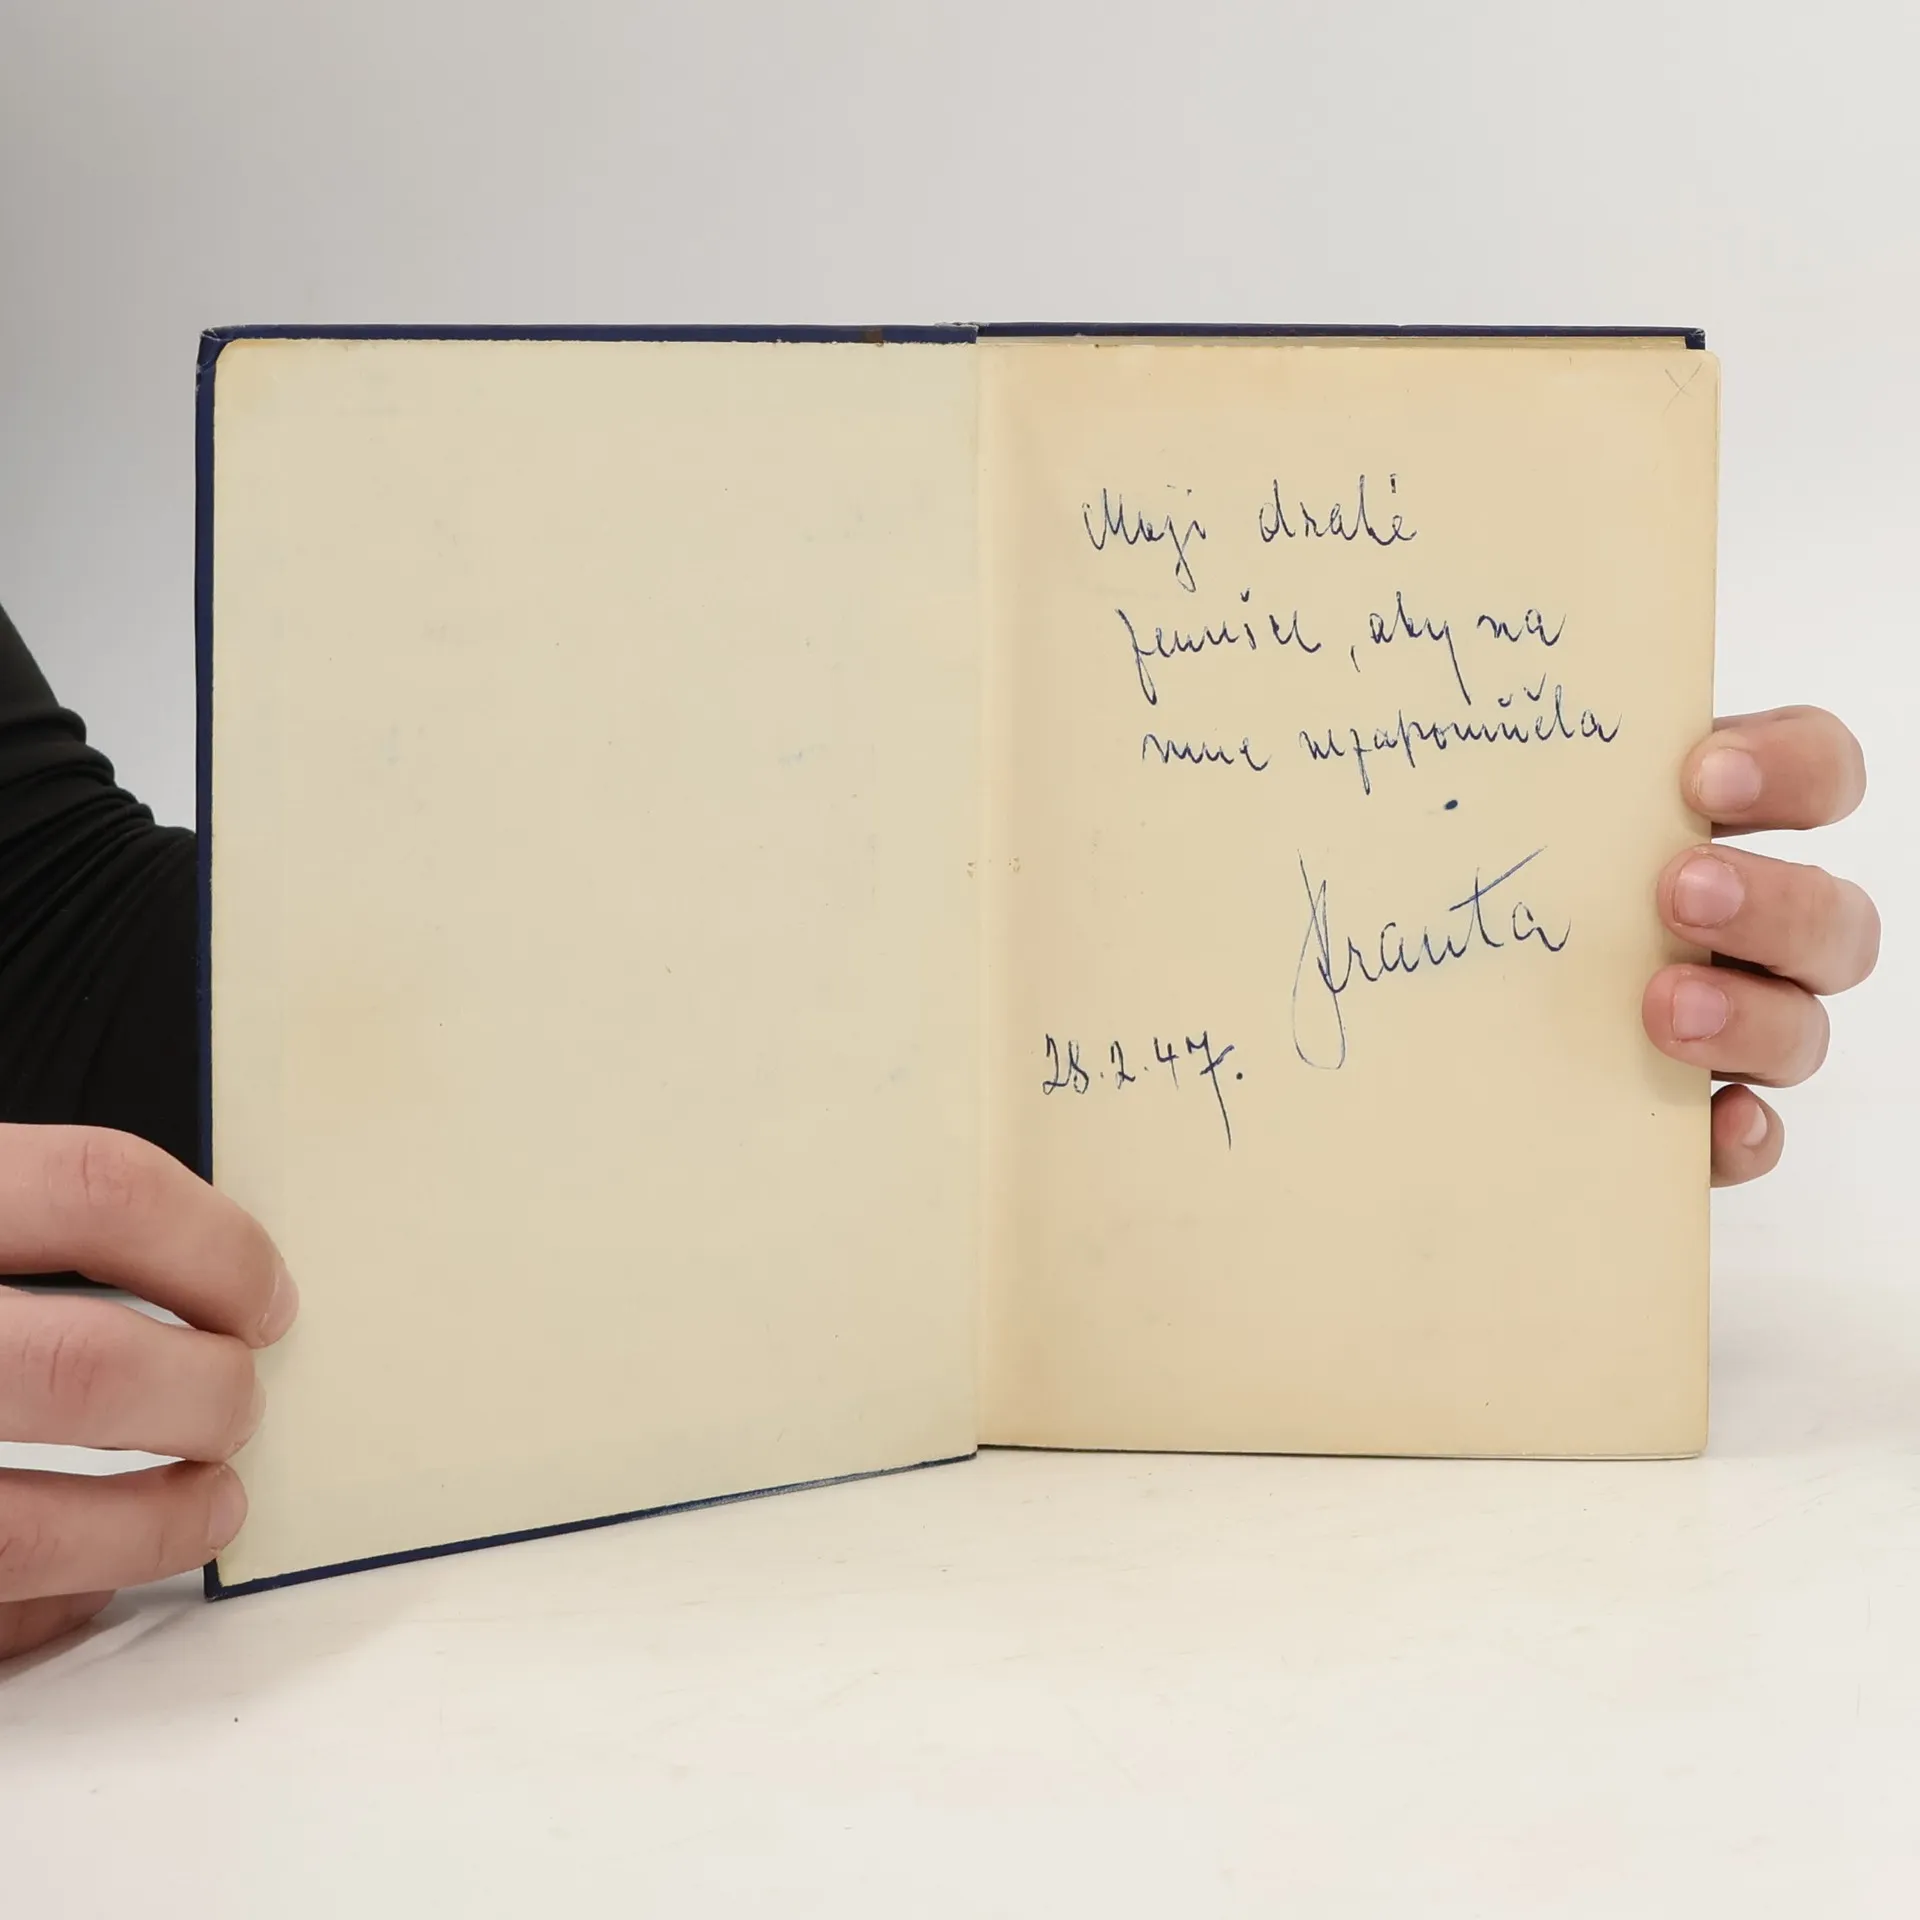 Moji drahé
ženušce, aby na
mne nezapomněla
.
Franta
28.2.47.